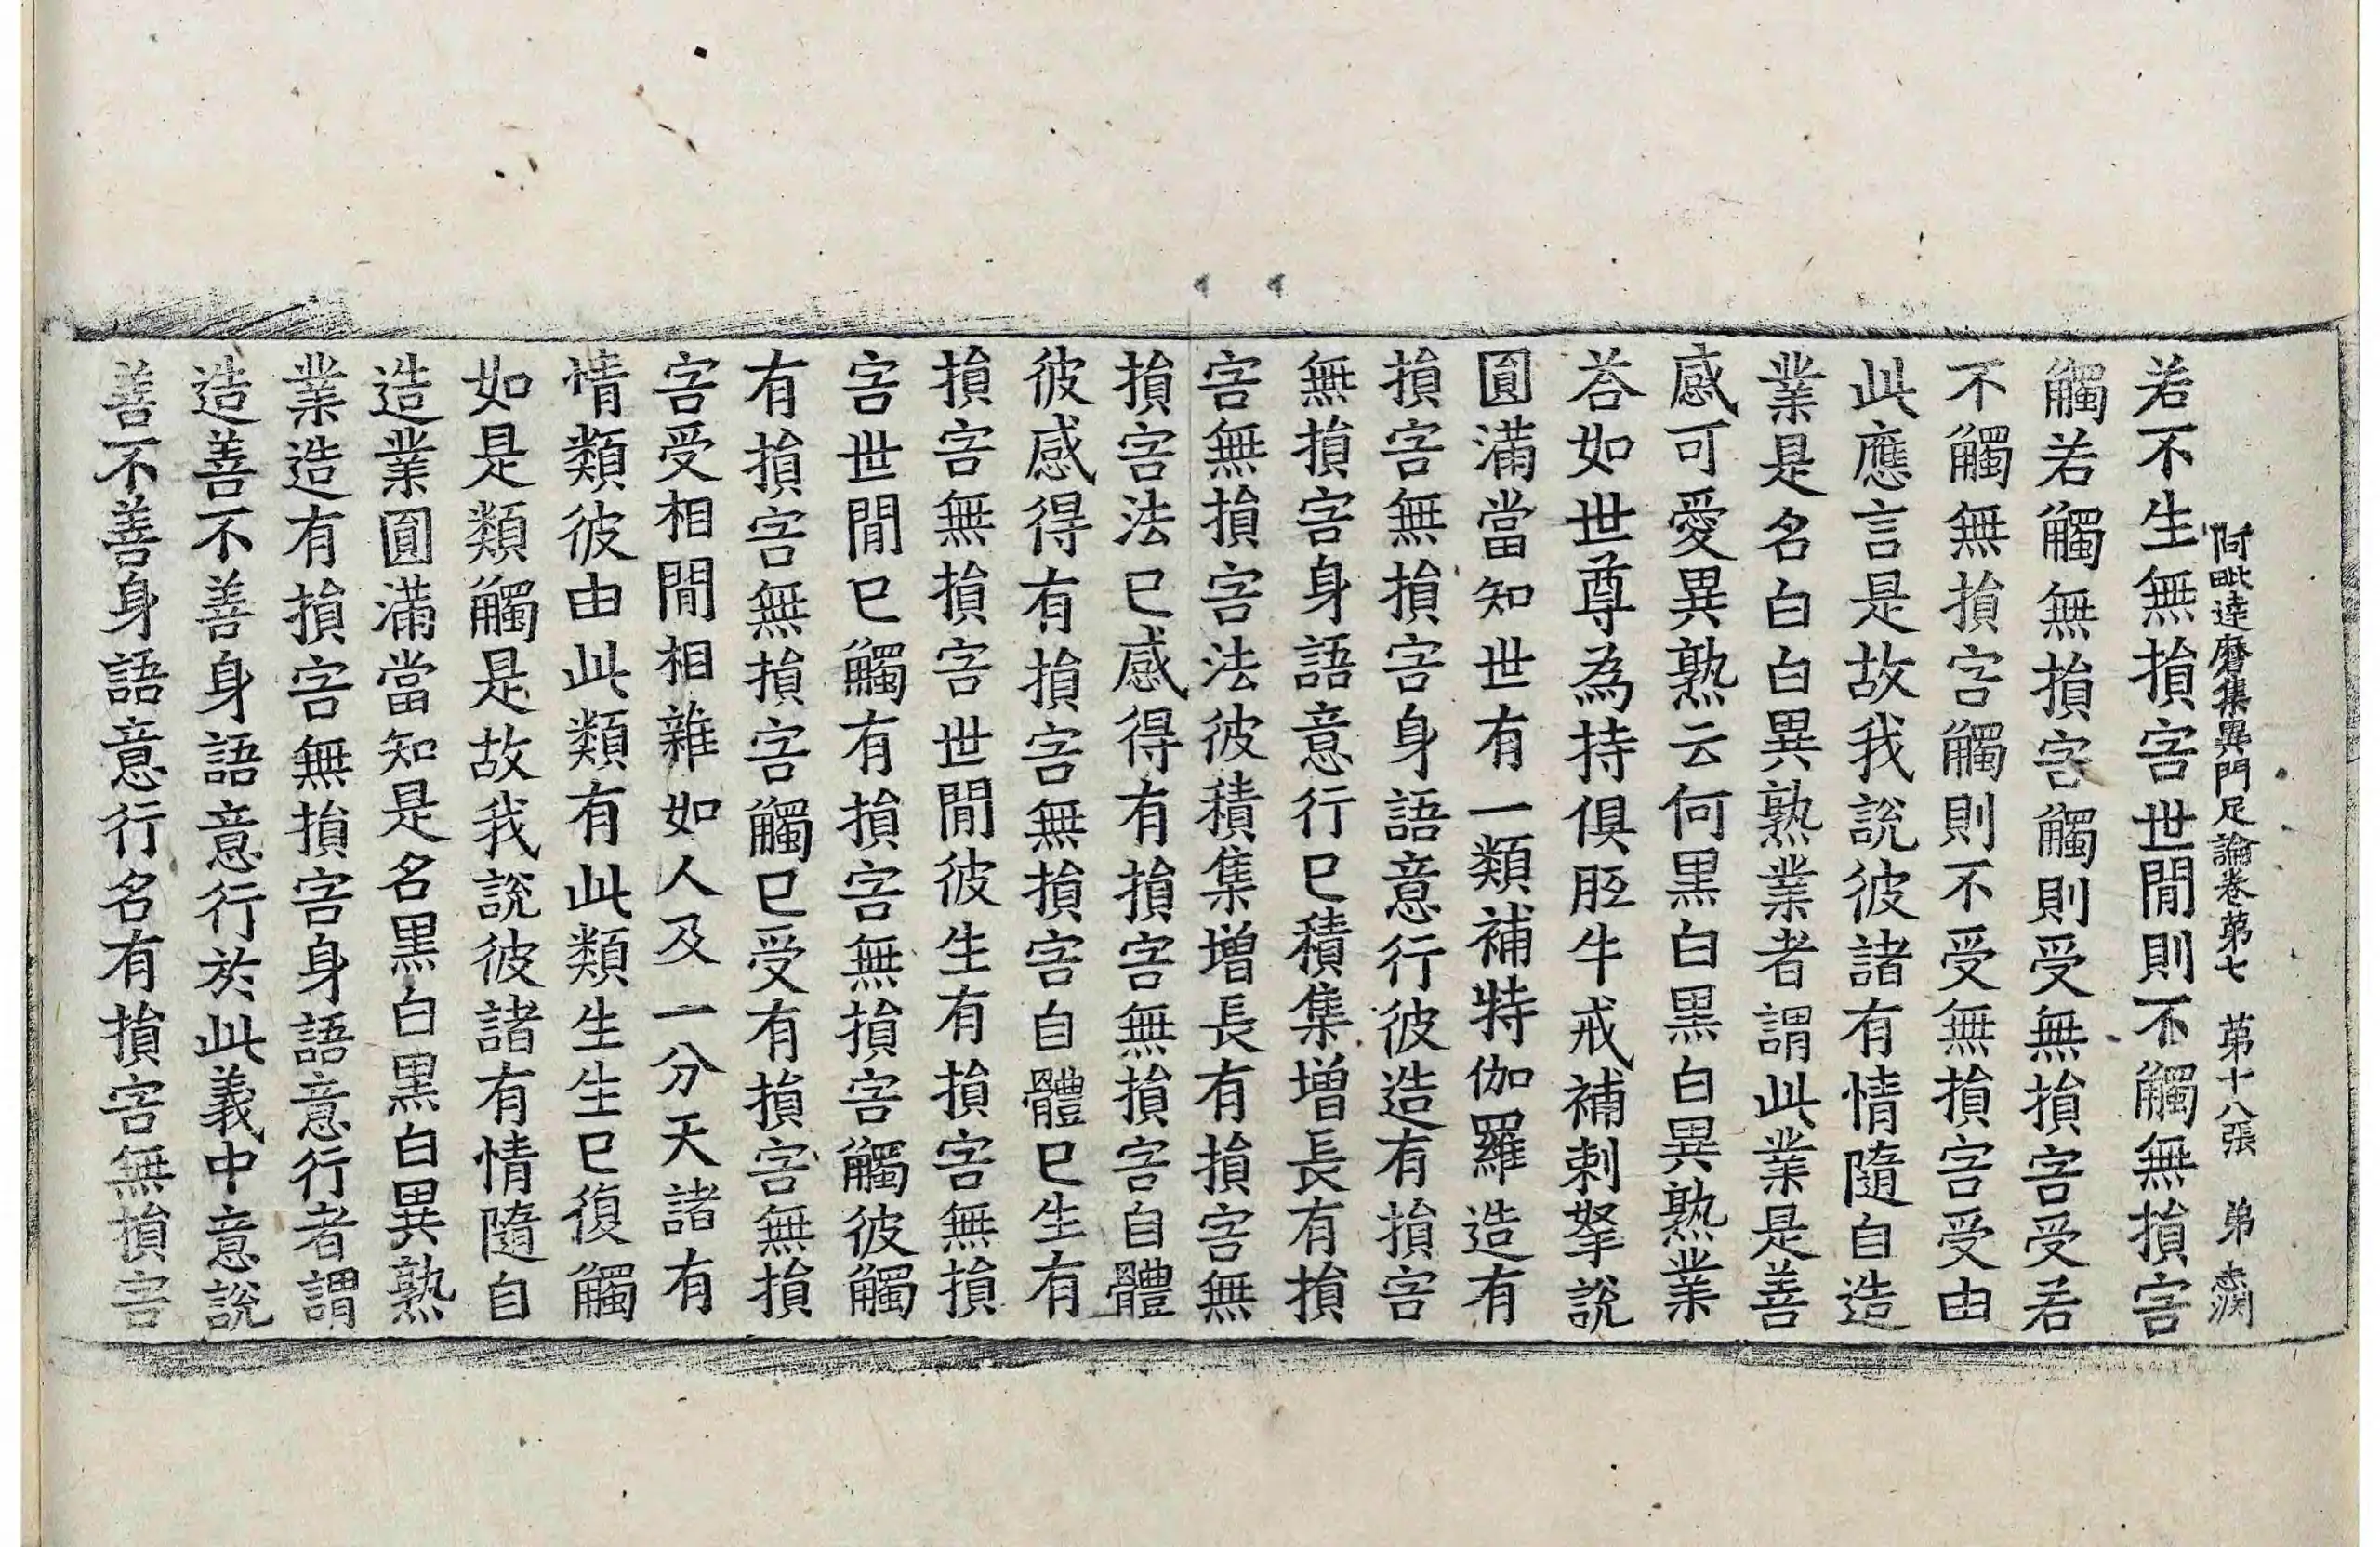 阿毗達磨集異門足論卷第七　第十八張　弟
若不生無損害世間則不觸無損害
觸若觸無損害觸則受無損害受若
不觸無損害觸則不受無損害受由
此應言是故我說彼諸有情隨自造
業是名白白異熟業者謂此業是善
感可愛異熟云何黑白黑白異熟業
荅如世尊為持俱胝牛戒補剌拏說
圓滿當知世有一類補特伽羅造有
損害無損害身語意行彼造有損害
無損害身語意行已積集增長有損
害無損害法彼積集增長有損害無
損害法已感得有損害無損害自體
彼感得有損害無損害自體已生有
損害無損害世間彼生有損害無損
害世間已觸有損害無損害觸彼觸
有損害無損害觸已受有損害無損
害受相間相雜如人及一分天諸有
情類彼由此類有此類生生已復觸
如是類觸是故我說彼諸有情隨自
造業圓滿當知是名黑白黑白異熟
業造有損害無損害身語意行者謂
造善不善身語意行於此義中意說
善不善身語意行名有損害無損害